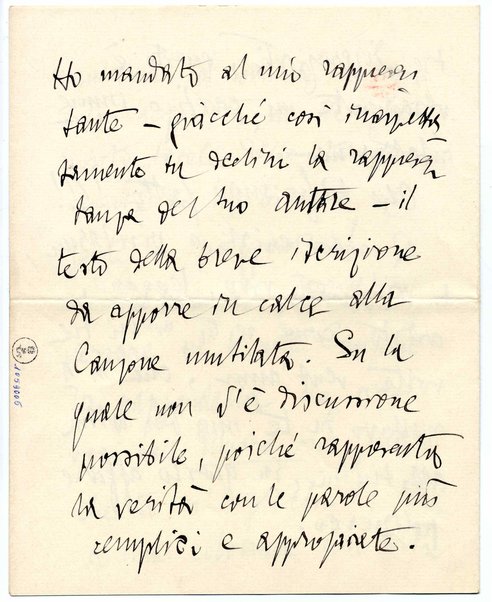 Ho mandato al mio rappresen
tante – giacché così inaspetta
tamente tu declini la rappresen
tanza del tuo autore – il
testo della breve iscrizione
da apporre in calce alla
Canzone mutilata. Su la
quale non v'è discussione
possibile, poiché rappresenta
la verità con le parole più
semplici e appropriate.